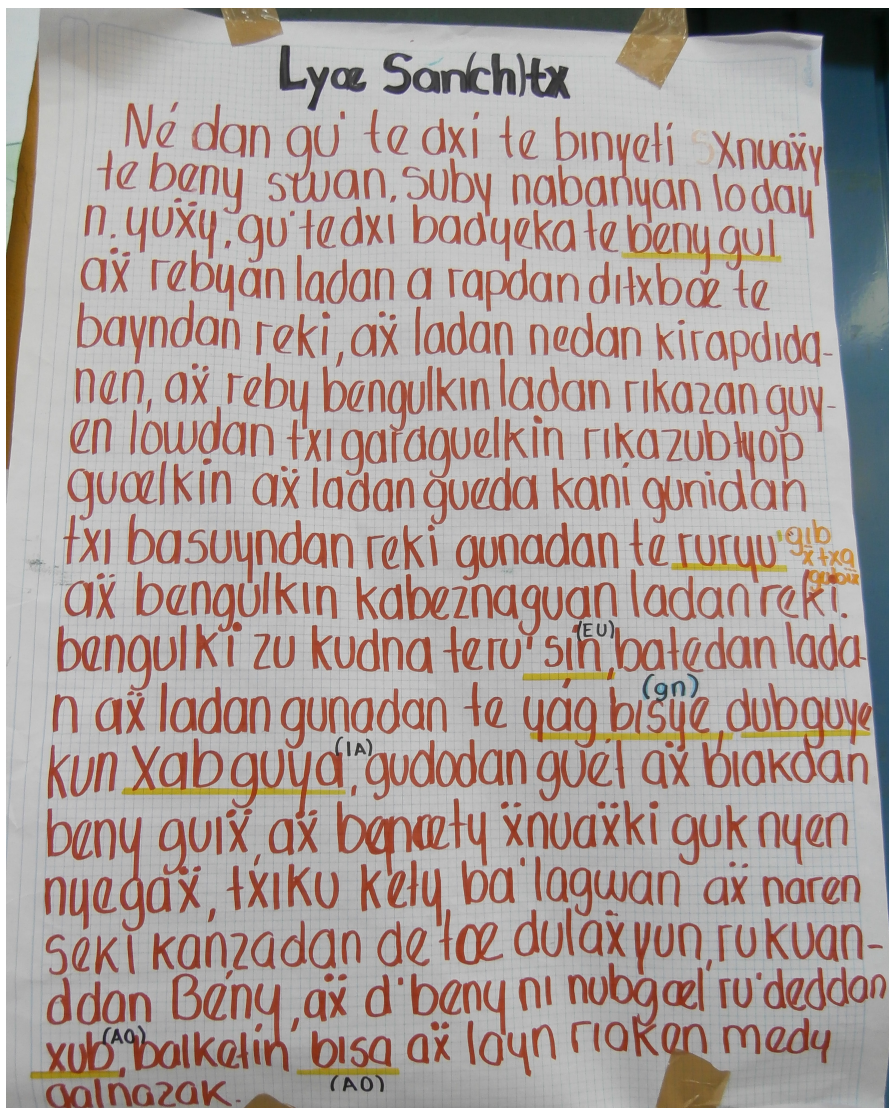 Lyœ San(ch)tx
Né dan gu' te dxi te binyeti Xnuaẍy
te beny swan, suby nabanyan loday
n. yuẍy, gu'tedxi badyeka te beny gul
aẍ rebyan ladan a rapdan ditxbœ te
bayndan reki, aẍ ladan nedan kirapdida-
nen, aẍ reby bengulkin ladan rikazan guy-
en lowdan txi garaguelkin rikazubtyop
guœlkin aẍ ladan gueda kani gunidan
txi basuyndan reki gunadan te ruryu' gib
x txa
aẍ bengulkin kabeznaguan ladan reki.
(EU)
bengulki zu kudna teru' sin, batedan lada-
(gn)
n aẍ ladan gunadan te yág bisye, dubguye
(IA)
kun Xabguya, gudodan guet aẍ biakdan
beny guiẍ, aẍ benœty ẍnuaẍki guk nyen
nyegaẍ, txiku kety ba'lagwan aẍ naren
seki kanzadan de'tœ dulaẍyun, rukuan-
ddan Bény, aẍ d'beny ni nubgœl ru'deddan
(AO)
xub, balketin bisa aẍ layn riaken medy
(AO)
galnazak.